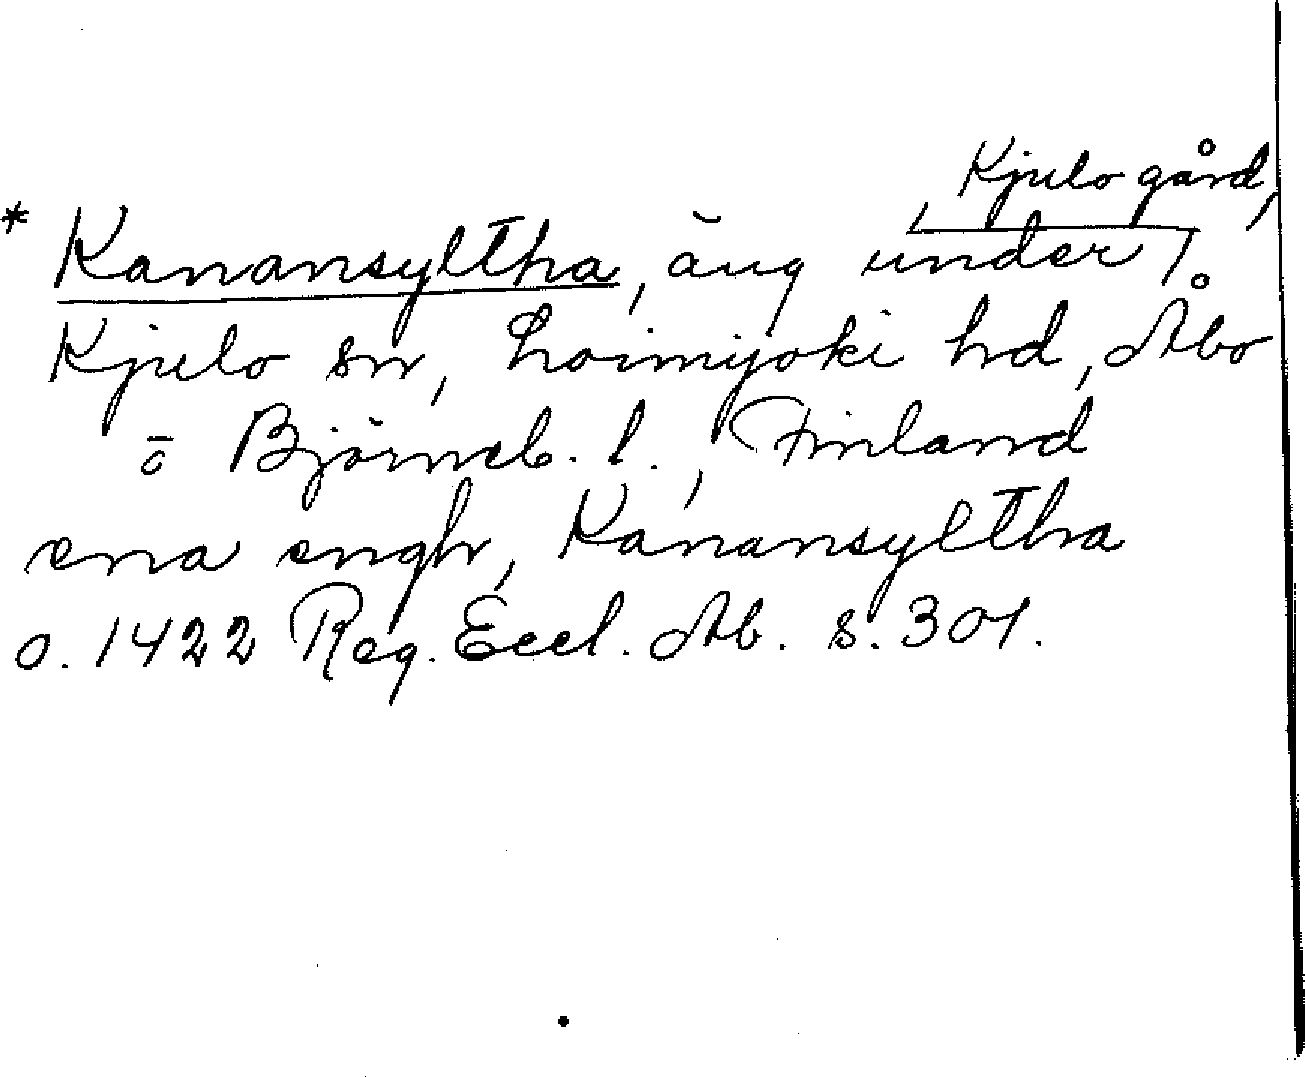 Kjulo gård,
* Kanansyltha, äng under
Kjulo sn, Loimijoki hd, Åbo
o Björneb. l., Finland
ena engh, Kanansyltha
o. 1422 Reg. Eccl. Ab. s. 301.